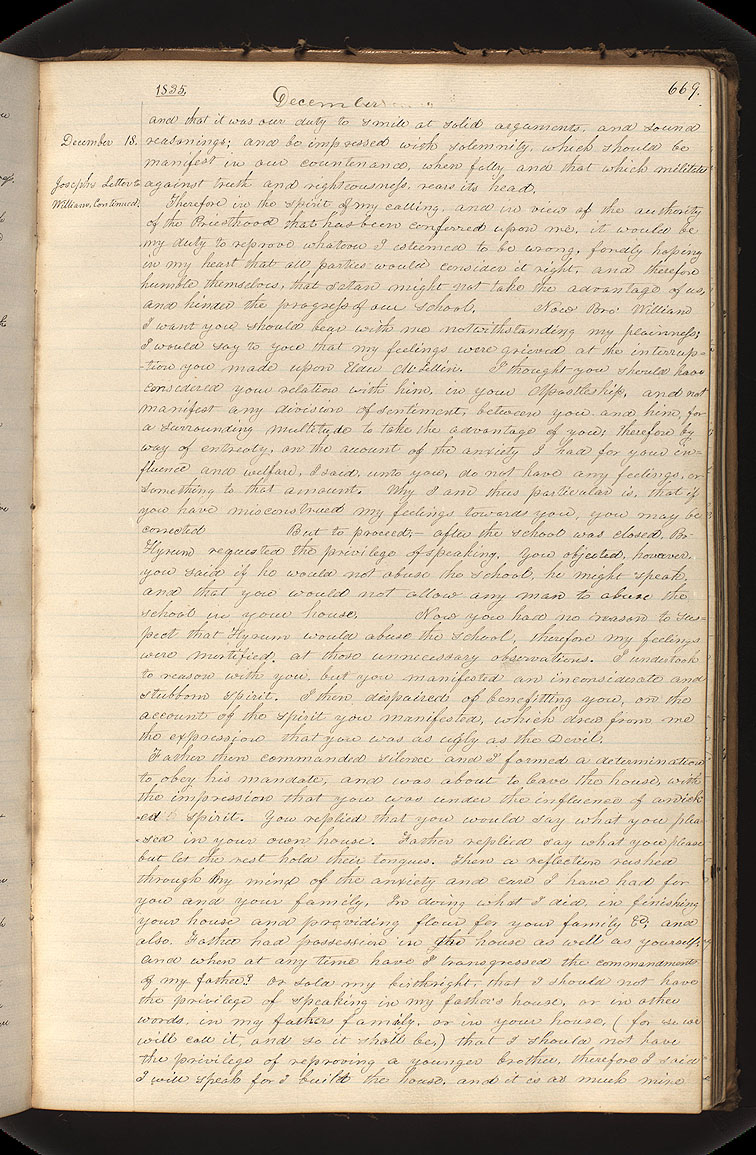 1835.
December
669.
and that it was our duty to smile at solid arguments, and sound
December 18.
reasonings; and be impressed with solemnity, which should be
manifest in our countenance, when folly, and that which militates
Josephs Letter to
against truth and righteousness, rears its head.
William. Continued.
Therefore in the spirit of my calling, and in view of the authority
of the Priesthood that has been conferred upon me, it would be
my duty to reprove whatever I esteemed to be wrong, fondly hoping
in my heart that all parties would consider it right, and therefore
humble themselves, that satan might not take the advantage of us,
and hinder the progress of our School. Now Bro. William
I want you should bear with me notwithstanding my plainness;
I would say to you that my feelings were grieved at the interrup=
=tion you made upon Elder McLellin. I thought you should have
considered your relation with him, in your Apostleship, and not
manifest any division of sentiment, between you and him, for
a surrounding multitude to take the advantage of you; therefore by
way of entreaty, on the account of the anxiety I had for your in=
fluence and welfare, I said, unto you, do not have any feelings, or
something to that amount. Why I am thus particular is, that if
you have misconstrued my feelings towards you, you may be
corrected But to proceed,— after the school was closed, Br.
Hyrum requested the privilege of speaking, you objected, however
you said if he would not abuse the school, he might speak,
and that you would not allow any man to abuse the
school in your house. Now you had no reason to sus=
pect that Hyrum would abuse the school, therefore my feelings
were mortified, at those unnecessary observations. I undertook
to reason with you, but you manifested an inconsiderate and
stubborn spirit. I then dispaired of benefitting you, on the
account of the spirit you manifested, which drew from me
the expression that you was as ugly as the Devil.
Father then commanded silence and I formed a determination
to obey his mandate, and was about to leave the house, with
the impression that you was under the influence of a wick
=ed spirit. You replied that you would say what you plea
=sed in your own house. Father replied say what you please
but let the rest hold their tongues. Then a reflection rushed
through my mind of the anxiety and care I have had for
you and your family, in doing what I did, in finishing
your house and providing flour for your family &c, and
also. Father had possession in the house as well as yourself;
and when at any time have I transgressed the commandments
of my father? or sold my birthright, that I should not have
the privilege of speaking in my father's house, or in other
words, in my fathers family, or in your house, (for so we
will call it, and so it shall be,) that I should not have
the privilege of reproving a younger brother, therefore I said
I will speak for I built the house, and it is as much mine